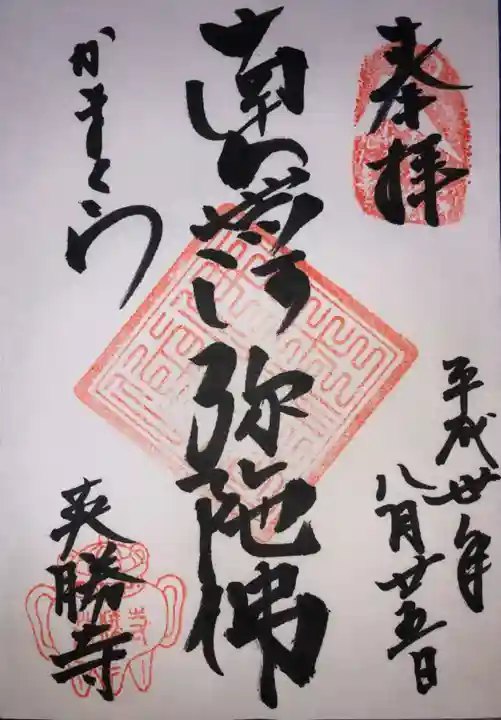 奉拝
平成卅年
八月廿五日
南無阿弥陀佛
かまくら
英勝寺